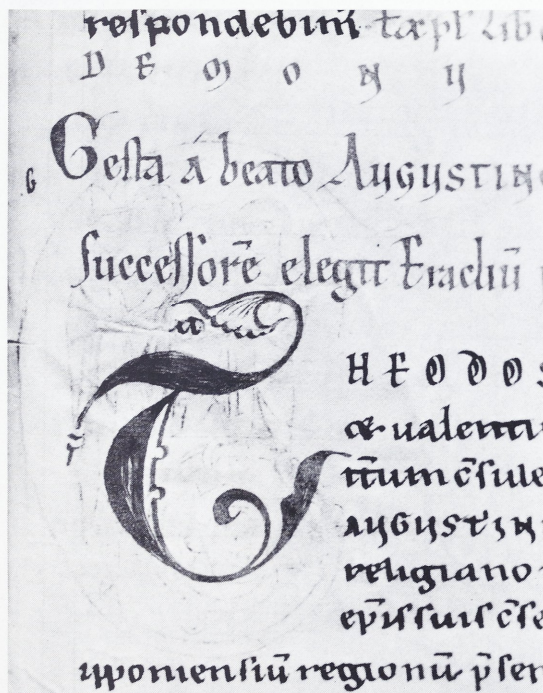 respondebim̄ expl Lib
D E M O N U
G Gesta a beato AUGUSTINO
successorē elegit Eracliū
T HEODOS
ualenti
c̄sule
AUGUSTIN
religiano
ep̄is suis c̄se
ypponiensiū regionū p̄sen